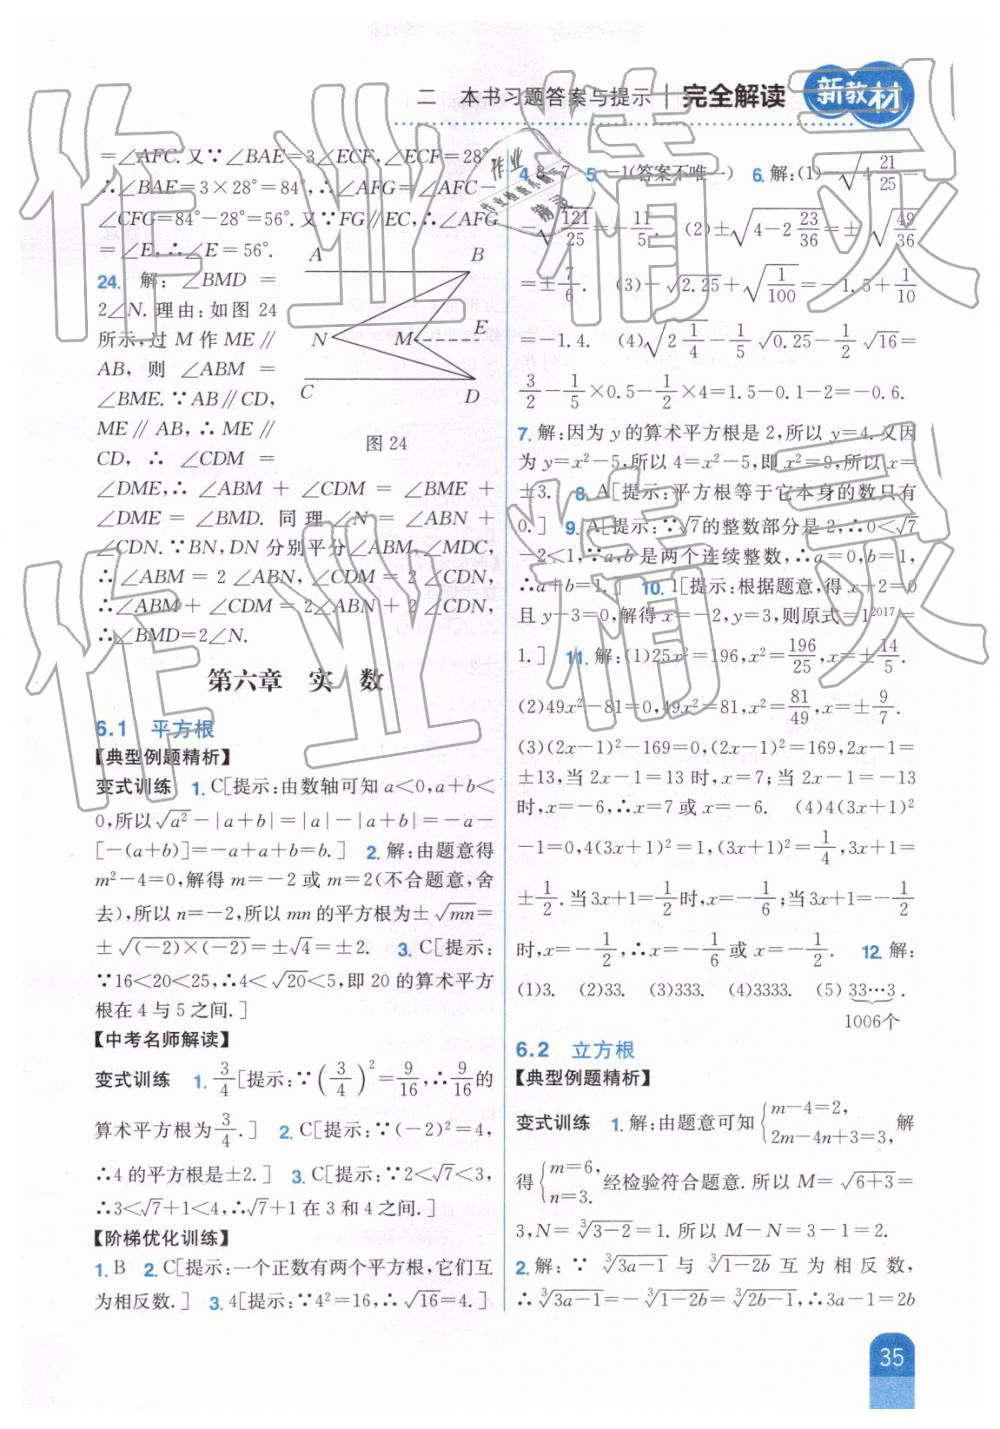 二 本书习题答案与提示 完全解读 新教材
=∠AFC.又∵∠BAE=3∠ECF,∠ECF=28°,
∴∠BAE=3×28°=84°,∴∠AFG=∠AFC-
∠CFG=84°-28°=56°.又∵FG∥EC,∴∠AFG
=∠E,∴∠E=56°.
24. 解:∠BMD=
2∠N.理由:如图24
所示,过M作ME∥
AB,则∠ABM=
∠BME.∵AB∥CD,
ME∥AB,∴ME∥
CD,∴∠CDM=
A B
N M E
C D
图24
∠DME,∴∠ABM+∠CDM=∠BME+
∠DME=∠BMD.同理∠N=∠ABN+
∠CDN.∵BN,DN分别平分∠ABM,∠MDC,
∴∠ABM=2∠ABN,∠CDM=2∠CDN,
∴∠ABM+∠CDM=2∠ABN+2∠CDN,
∴∠BMD=2∠N.
第六章 实 数
6.1 平方根
【典型例题精析】
变式训练 1. C[提示:由数轴可知a<0,a+b<
0,所以√a²-|a+b|=|a|-|a+b|=-a-
[-(a+b)]=-a+a+b=b.] 2. 解:由题意得
m²-4=0,解得m=-2或m=2(不合题意,舍
去),所以n=-2,所以mn的平方根为±√mn=
±√(-2)×(-2)=±√4=±2. 3. C[提示:
∵16<20<25,∴4<√20<5,即20的算术平方
根在4与5之间.]
【中考名师解读】
变式训练 1. 3/4[提示:∵(3/4)²=9/16,∴9/16的
算术平方根为3/4.] 2. C[提示:∵(-2)²=4,
∴4的平方根是±2.] 3. C[提示:∵2<√7<3,
∴3<√7+1<4,∴√7+1在3和4之间.]
【阶梯优化训练】
1. B 2. C[提示:一个正数有两个平方根,它们互
为相反数.] 3. 4[提示:∵4²=16,∴√16=4.]
4. 8 -7 5. -1(答案不唯一) 6. 解:(1)-√4 21/25=
-√121/25=-11/5. (2)±√4-2 23/36=±√49/36
=±7/6. (3)-√2.25+√1/100=-1.5+1/10
=-1.4. (4)√2 1/4-1/5√0.25-1/2√16=
3/2-1/5×0.5-1/2×4=1.5-0.1-2=-0.6.
7. 解:因为y的算术平方根是2,所以y=4.又因
为y=x²-5,所以4=x²-5,即x²=9,所以x=
±3. 8. A[提示:平方根等于它本身的数只有
0.] 9. A[提示:∵√7的整数部分是2,∴0<√7
-2<1,∵a,b是两个连续整数,∴a=0,b=1,
∴a+b=1.] 10. 1[提示:根据题意,得x+2=0
且y-3=0,解得x=-2,y=3,则原式=1²⁰¹⁷=
1.] 11. 解:(1)25x²=196,x²=196/25,x=±14/5.
(2)49x²-81=0,49x²=81,x²=81/49,x=±9/7.
(3)(2x-1)²-169=0,(2x-1)²=169,2x-1=
±13,当2x-1=13时,x=7;当2x-1=-13
时,x=-6,∴x=7或x=-6. (4)4(3x+1)²
-1=0,4(3x+1)²=1,(3x+1)²=1/4,3x+1=
±1/2.当3x+1=1/2时,x=-1/6;当3x+1=-1/2
时,x=-1/2,∴x=-1/6或x=-1/2. 12. 解:
(1)3. (2)33. (3)333. (4)3333. (5)33…3.
1006个
6.2 立方根
【典型例题精析】
变式训练 1. 解:由题意可知{m-4=2, 2m-4n+3=3,解
得{m=6, n=3. 经检验符合题意.所以M=√6+3=
3,N=∛3-2=1.所以M-N=3-1=2.
2. 解:∵∛3a-1与∛1-2b互为相反数,
∴∛3a-1=-∛1-2b=∛2b-1,∴3a-1=2b
35
作业精灵
作业精灵
作业
作业检查小精灵
精灵